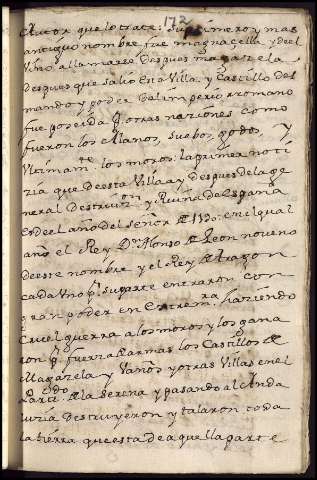 172
Autor que lo trate: Su primero y mas
antiguo nombre fue magnaçella y de el
Vino a llamarse despues magazela
despues que salio esta Villa, y Castillo del
mando y poder del imperio rromano
fue poseida de otras naziones como
fueron los Alanos, suebos, godos, y
Ultimamte. los moros: la primera noti
zia que de esta Villa ay despues de la ge
neral Destruizon. y Ruina de España
es de el año del señor de 1130: en el qual
año el Rey Dn. Alonso de Leon noveno
de este nombre y el Rey de Aragon
cada Uno pr. su parte entraron con
gran poder en Extremra. haziendo
Cruel guerra a los moros y los gana
ron pr. fuerza de armas los Castillos de
Magazela y Vaños y otras Villas en el
Partido. de la Serena y pasando al Anda
luzia Destruyeron y talaron toda
la tierra que esta de aquella parte